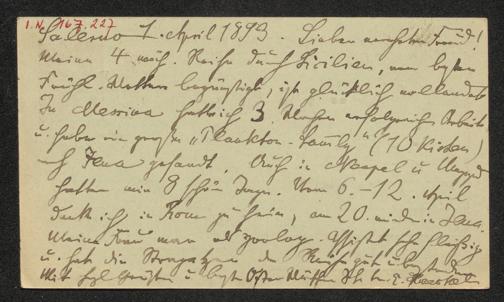 I.N. 167.227
Salerno 1. April 1893. Lieber verehrter Freund!
Meine 4 wöch. Reise durch Sicilien, vom besten
Frühl. Wetter begünstigt, ist glücklich vollendet
In Messina hatte ich 3 Wochen erfolgreicher Arbeit
u. habe eine große „Plankton-Samlg" (10 Kisten)
nach Jena gesandt. Auch in Neapel u
hatten wir 8 schöne Tage. Vom 6.–12. April
denke ich in Rom zu sein, am 20. wieder in Jena.
Meine Frau war als zoolog. sehr fleißig
u. hat die Strapazen der Reise gut überstanden
Mit herzl. Grüßen u. besten Oster Wünschen Ihr tr. E. Haeckel